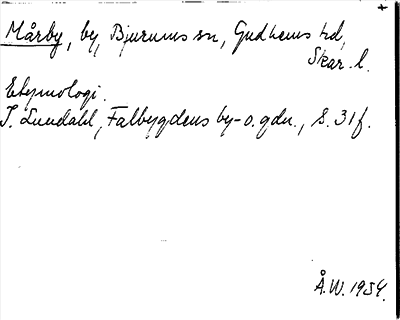 Mårby, by, Bjurums sn, Gudhems hd,
Skar. l.
Etymologi.
I. Lundahl, Falbygdens by- o. gdn., s. 31 f.
Å.W. 1954.